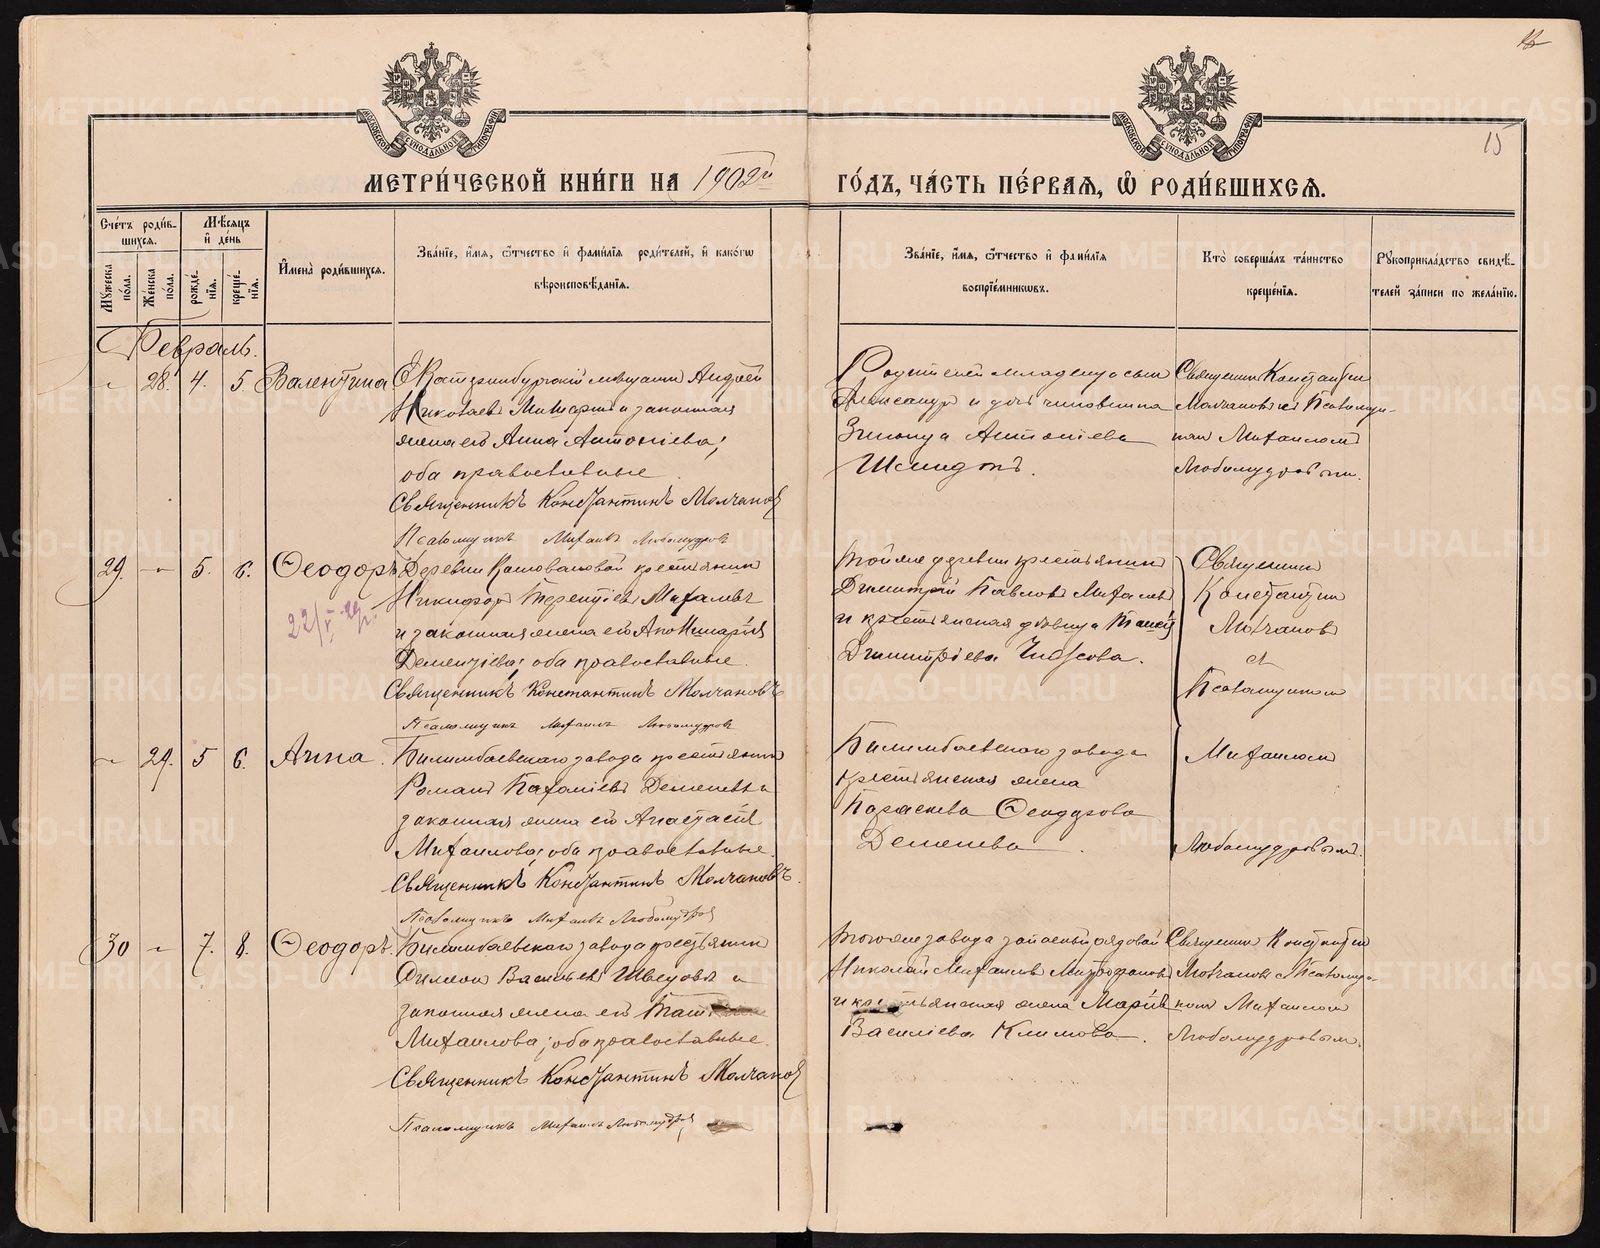 15
МЕТРИ́ЧЕСКОЙ КНИ́ГИ НА 1902й ГО́ДЪ, ЧА́СТЬ ПЕ́РВАѦ, Ѿ РОДИ́ВШИХСѦ.
Сче́тъ роди́вшихсѧ.
Мѣ́сѧцъ и де́нь
Му́жеска по́ла.
Же́нска по́ла.
рожде́нїѧ.
креще́нїѧ.
Имена̀ роди́вшихсѧ.
Зва́нїе, и́мѧ, ѻ҆́тчество и фами́лїѧ роди́телей, и како́гѡ вѣроисповѣ́данїѧ.
Зва́нїе, и́мѧ, ѻ҆́тчество и фами́лїѧ воспрїе́мникѡвъ.
Кто̀ соверша́лъ та́инство креще́нїѧ.
Рꙋкоприкла́дство свидѣ́телей за́писи по жела́нїю.
Февраль.
28. 4. 5. Валентина Екатеринбургскій мѣщанинъ Андрей
Николаевъ и законная
жена его Анна Антоніева;
оба православные
Священникъ Константинъ Молчановъ
Псаломщикъ Михаилъ Любомудровъ
Александръ и дочь чиновника
Зинаида Антоніева
Шмидтъ.
Священник Константин
Молчановъ съ Псаломщи-
ком Михаилом
Любомудровым.
29. 5. 6. Ѳеодоръ Деревни крестьянин
Никифор Терентіевъ Михалевъ
и законная жена его Аполлинарія
Дементіева; оба православные.
Священникъ Константинъ Молчановъ
Псаломщикъ Михаилъ Любомудровъ
той же деревни крестьянин
Димитрій Павловъ Михалевъ
и крестьянская дѣвица
Димитріева
Священник
Константин
Молчанов
съ
Псаломщиком
29. 5 6. Анна. Билимбаевскаго завода крестьянин
Роман
законная жена его Анастасія
Михаилова; оба православные.
Священникъ Константинъ Молчановъ.
Псаломщикъ Михаилъ Любомудровъ
Билимбаевскаго завода
крестьянская жена
Параскева Ѳеодорова
Михаилом
Любомудровым.
30 7. 8. Ѳеодоръ. Билимбаевскаго завода крестьянин
Симеон Васильев Швецовъ и
законная жена его
Михаилова; оба православные.
Священникъ Константинъ Молчановъ
Псаломщикъ Михаилъ Любомудровъ
того же завода запасный рядовой
Николай Михаилов Митрофановъ
и крестьянская жена Марія
Василіева Климова.
Священник Константин
Молчановъ с Псаломщи-
ком Михаилом
Любомудровым.
METRIKI.GASO-URAL.RU